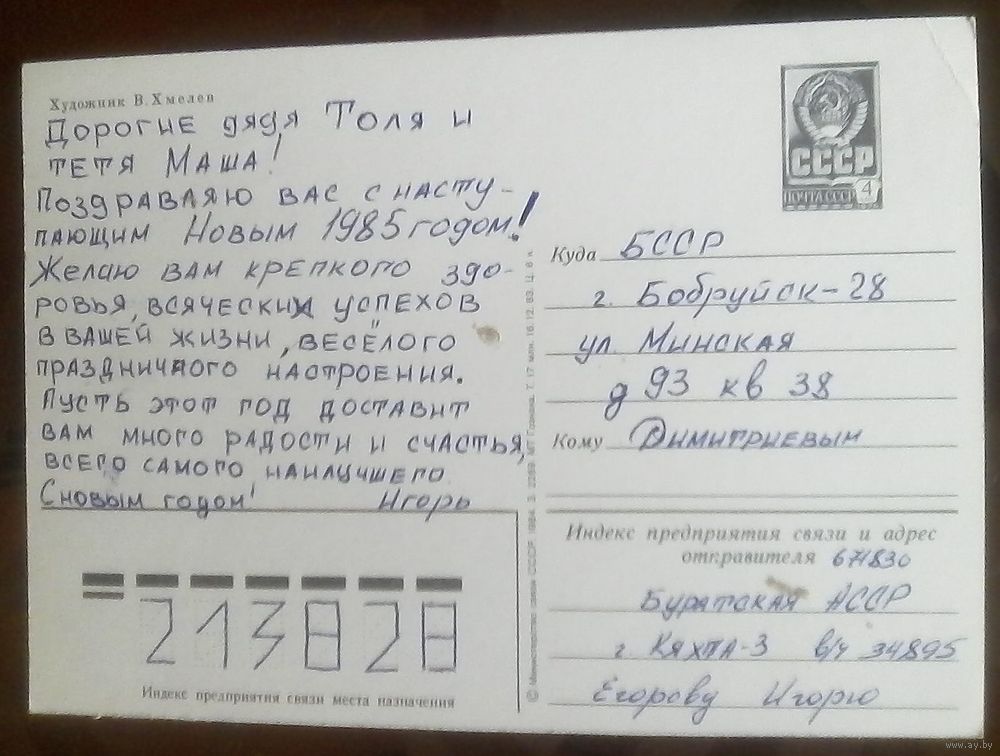 Художник В. Хмелев
Дорогие дядя Толя и
тетя Маша!
Поздравляю вас с насту-
пающим Новым 1985 годом!
Желаю вам крепкого здо-
ровья, всяческих успехов
в вашей жизни, весёлого
праздничного настроения.
Пусть этот год доставит
вам много радости и счастья,
всего самого наилучшего.
С новым годом! Игорь
СССР
4
ПОЧТА СССР
Куда БССР
г. Бобруйск-28
ул. Минская
д 93 кв 38
Кому Димитриевым
Индекс предприятия связи и адрес
отправителя 671830
Бурятская АССР
г. Кяхта-3 в/ч 34895
Егорову Игорю
213828
Индекс предприятия связи места назначения
© Министерство связи СССР. 1984.
www.ay.by